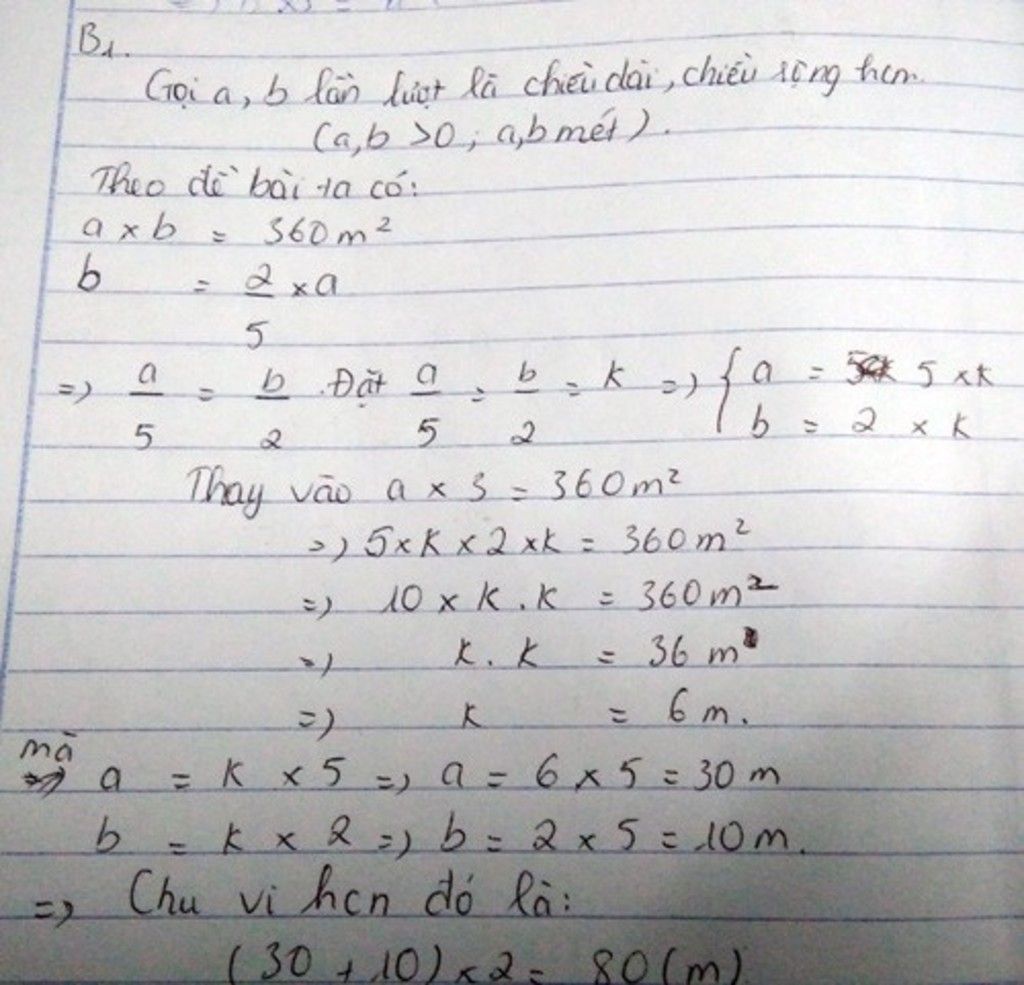 B1.
Gọi a, b lần lượt là chiều dài, chiều rộng hcn.
(a,b >0 ; a,b mét).
Theo đề bài ta có:
a x b = 360 m²
b = 2/5 x a
=) a/5 = b/2 . Đặt a/5 = b/2 = k =) { a = 5 x k
b = 2 x k
Thay vào a x 3 = 360 m²
=) 5 x k x 2 x k = 360 m²
=) 10 x k . k = 360 m²
=) k . k = 36 m
=) k = 6 m.
mà a = k x 5 =) a = 6 x 5 = 30 m
b = k x 2 =) b = 2 x 5 = 10 m.
=) Chu vi hcn đó là:
(30 + 10) x 2 = 80 (m)